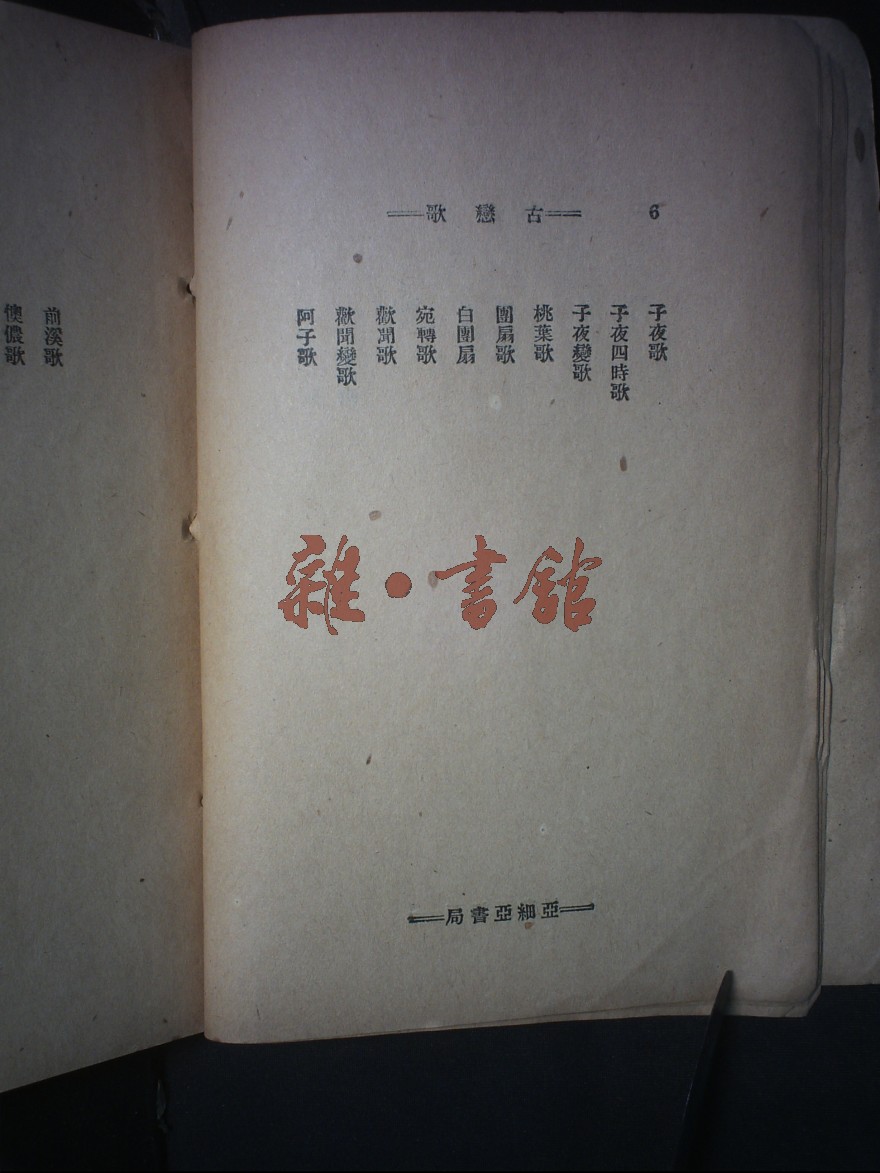 6
古戀歌
子夜歌
子夜四時歌
子夜變歌
桃葉歌
團扇歌
白團扇
宛轉歌
歡聞歌
歡聞變歌
阿子歌
亞細亞書局
前溪歌
懊儂歌
雜·書館